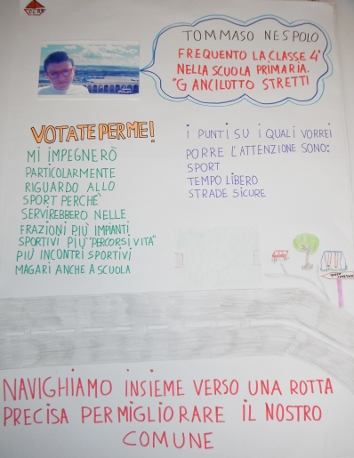 TOMMASO NESPOLO
FREQUENTO LA CLASSE 4ª
NELLA SCUOLA PRIMARIA.
"G ANCILOTTO STRETTI
VOTATE PER ME!
MI IMPEGNERÒ
PARTICOLARMENTE
RIGUARDO ALLO
SPORT PERCHÈ
SERVIREBBERO NELLE
FRAZIONI PIÙ IMPIANTI
SPORTIVI PIÙ "PERCORSI VITA"
PIÙ INCONTRI SPORTIVI
MAGARI ANCHE A SCUOLA
I PUNTI SU I QUALI VORREI
PORRE L'ATTENZIONE SONO:
SPORT
TEMPO LIBERO
STRADE SICURE
NAVIGHIAMO INSIEME VERSO UNA ROTTA
PRECISA PER MIGLIORARE IL NOSTRO
COMUNE